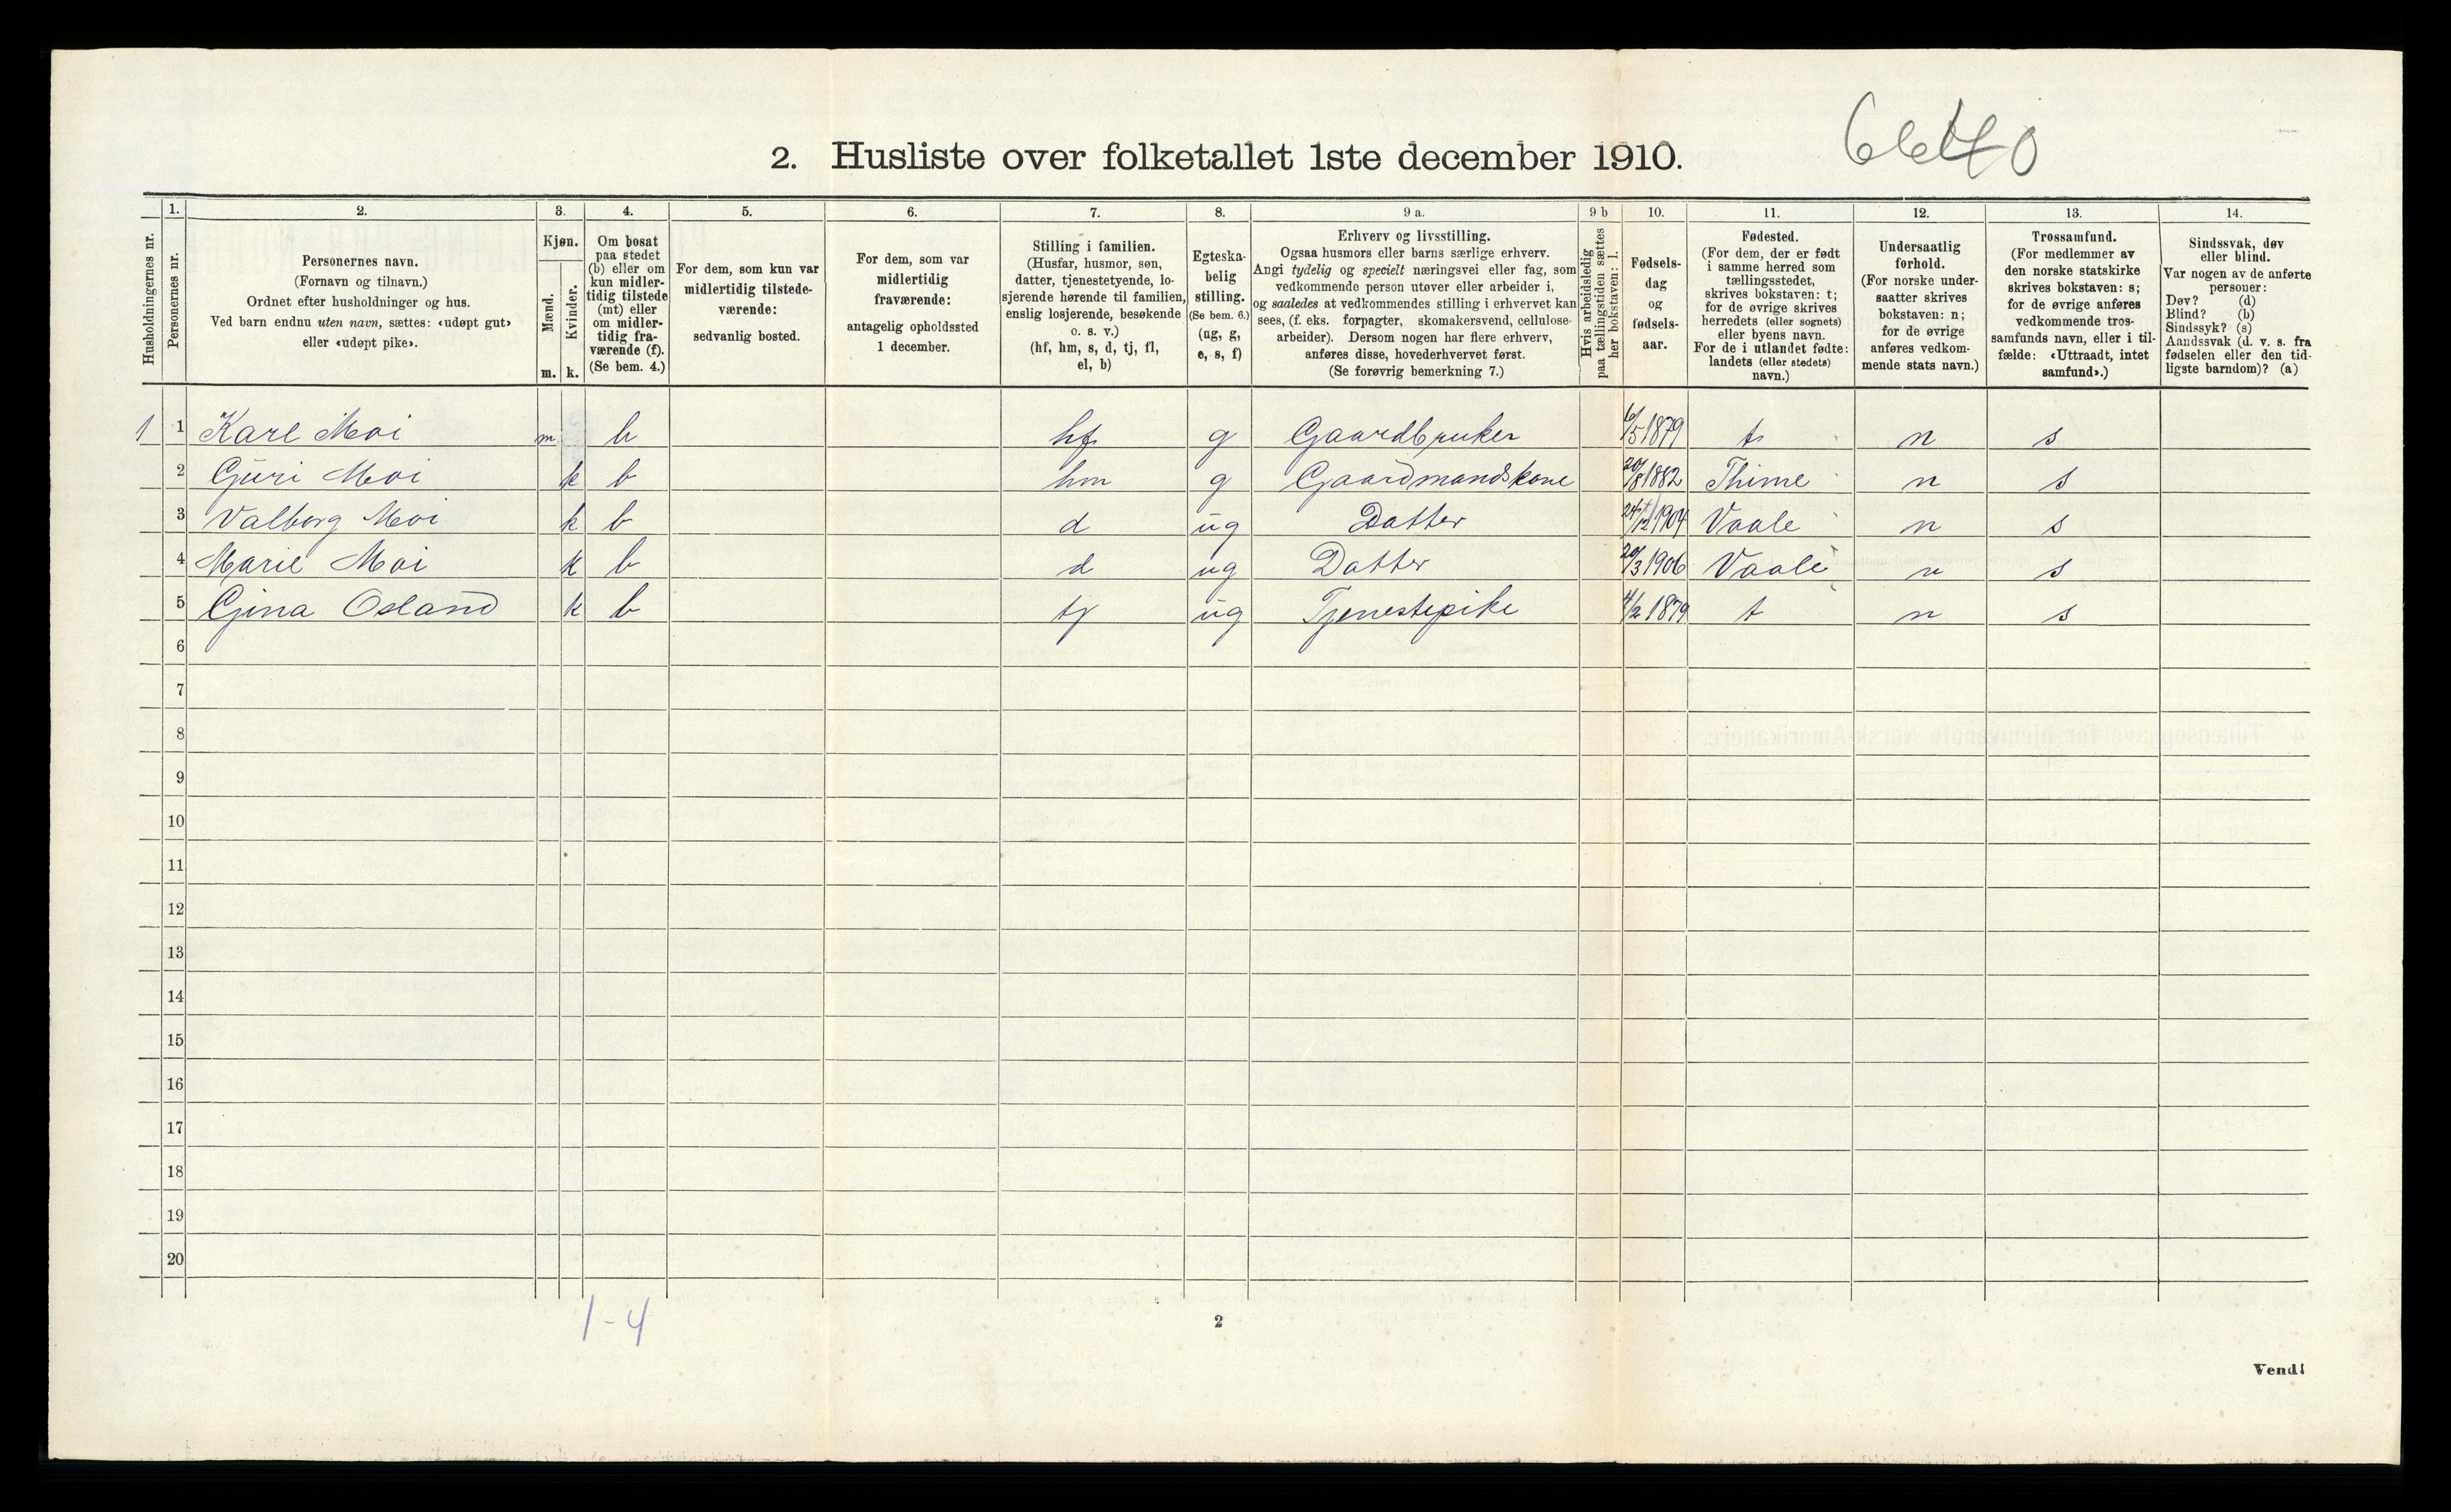 2. Husliste over folketallet 1ste december 1910.
Husholdningernes nr.
1. Personernes nr.
2. Personernes navn.
(Fornavn og tilnavn.)
Ordnet efter husholdninger og hus.
Ved barn endnu uten navn, sættes: «udøpt gut»
eller «udøpt pike».
3. Kjøn.
Mænd. m.
Kvinder. k.
4. Om bosat
paa stedet
(b) eller om
kun midler-
tidig tilstede
(mt) eller
om midler-
tidig fra-
værende (f).
(Se bem. 4.)
5. For dem, som kun var
midlertidig tilstede-
værende:
sedvanlig bosted.
6. For dem, som var
midlertidig
fraværende:
antagelig opholdssted
1 december.
7. Stilling i familien.
(Husfar, husmor, søn,
datter, tjenestetyende, lo-
sjerende hørende til familien,
enslig losjerende, besøkende
o. s. v.)
(hf, hm, s, d, tj, fl,
el, b)
8. Egteska-
belig
stilling.
(Se bem. 6.)
(ug, g,
e, s, f)
9 a. Erhverv og livsstilling.
Ogsaa husmors eller barns særlige erhverv.
Angi tydelig og specielt næringsvei eller fag, som
vedkommende person utøver eller arbeider i,
og saaledes at vedkommendes stilling i erhvervet kan
sees, (f. eks. forpagter, skomakersvend, cellulose-
arbeider). Dersom nogen har flere erhverv,
anføres disse, hovederhvervet først.
(Se forøvrig bemerkning 7.)
9 b Hvis arbeidsledig
paa tællingstiden sættes
her bokstaven: l.
10. Fødsels-
dag
og
fødsels-
aar.
11. Fødested.
(For dem, der er født
i samme herred som
tællingsstedet,
skrives bokstaven: t;
for de øvrige skrives
herredets (eller sognets)
eller byens navn.
For de i utlandet fødte:
landets (eller stedets)
navn.)
12. Undersaatlig
forhold.
(For norske under-
saatter skrives
bokstaven: n;
for de øvrige
anføres vedkom-
mende stats navn.)
13. Trossamfund.
(For medlemmer av
den norske statskirke
skrives bokstaven: s;
for de øvrige anføres
vedkommende tros-
samfunds navn, eller i til-
fælde: «Uttraadt, intet
samfund».)
14. Sindssvak, døv
eller blind.
Var nogen av de anførte
personer:
Døv? (d)
Blind? (b)
Sindssyk? (s)
Aandssvak (d. v. s. fra
fødselen eller den tid-
ligste barndom)? (a)
1 1 Karl Moi m b hf g Gaardbruker 6/5 1879 t n s
2 Guri Moi k b hm g Gaardmandskone 20/8 1882 Thime n s
3 Valborg Moi k b d ug Datter 24/12 1904 Vaale n s
4 Marie Moi k b d ug Datter 20/3 1906 Vaale n s
5 Gina Osland k b tj ug Tjenestepike 4/2 1879 t n s
6
7
8
9
10
11
12
13
14
15
16
17
18
19
20
1-4
2
Vend!